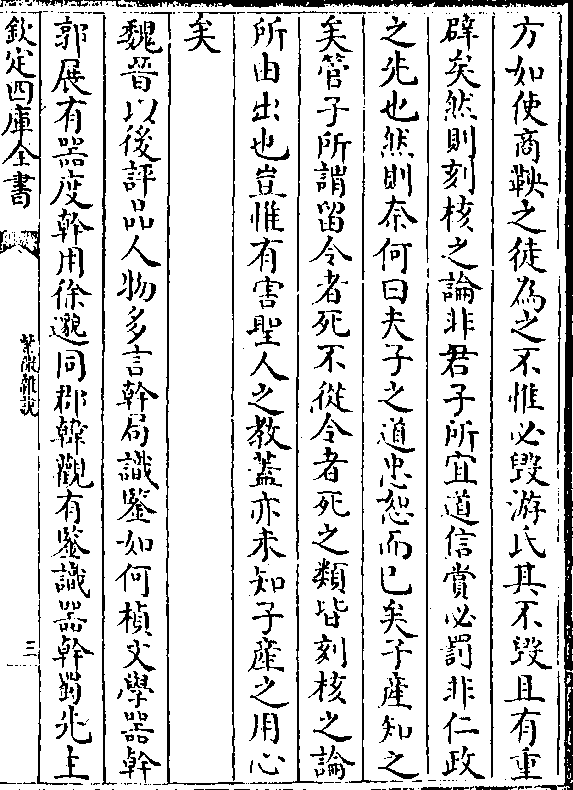 方如使商鞅之徒為之不惟必毀游氏其不毀且有重
辟矣然則刻核之論非君子所宜道信賞必罰非仁政
之先也然則奈何曰夫子之道忠恕而已矣子產知之
矣管子所謂留令者死不從令者死之類皆刻核之論
所由出也豈惟有害聖人之教蓋亦未知子產之用心
矣
魏晉以後評品人物多言幹局識鑒如何楨文學器幹
郭展有器度幹用徐邈同郡韓觀有鑒識器幹蜀先主
欽定四庫全書
紫微雜說
三